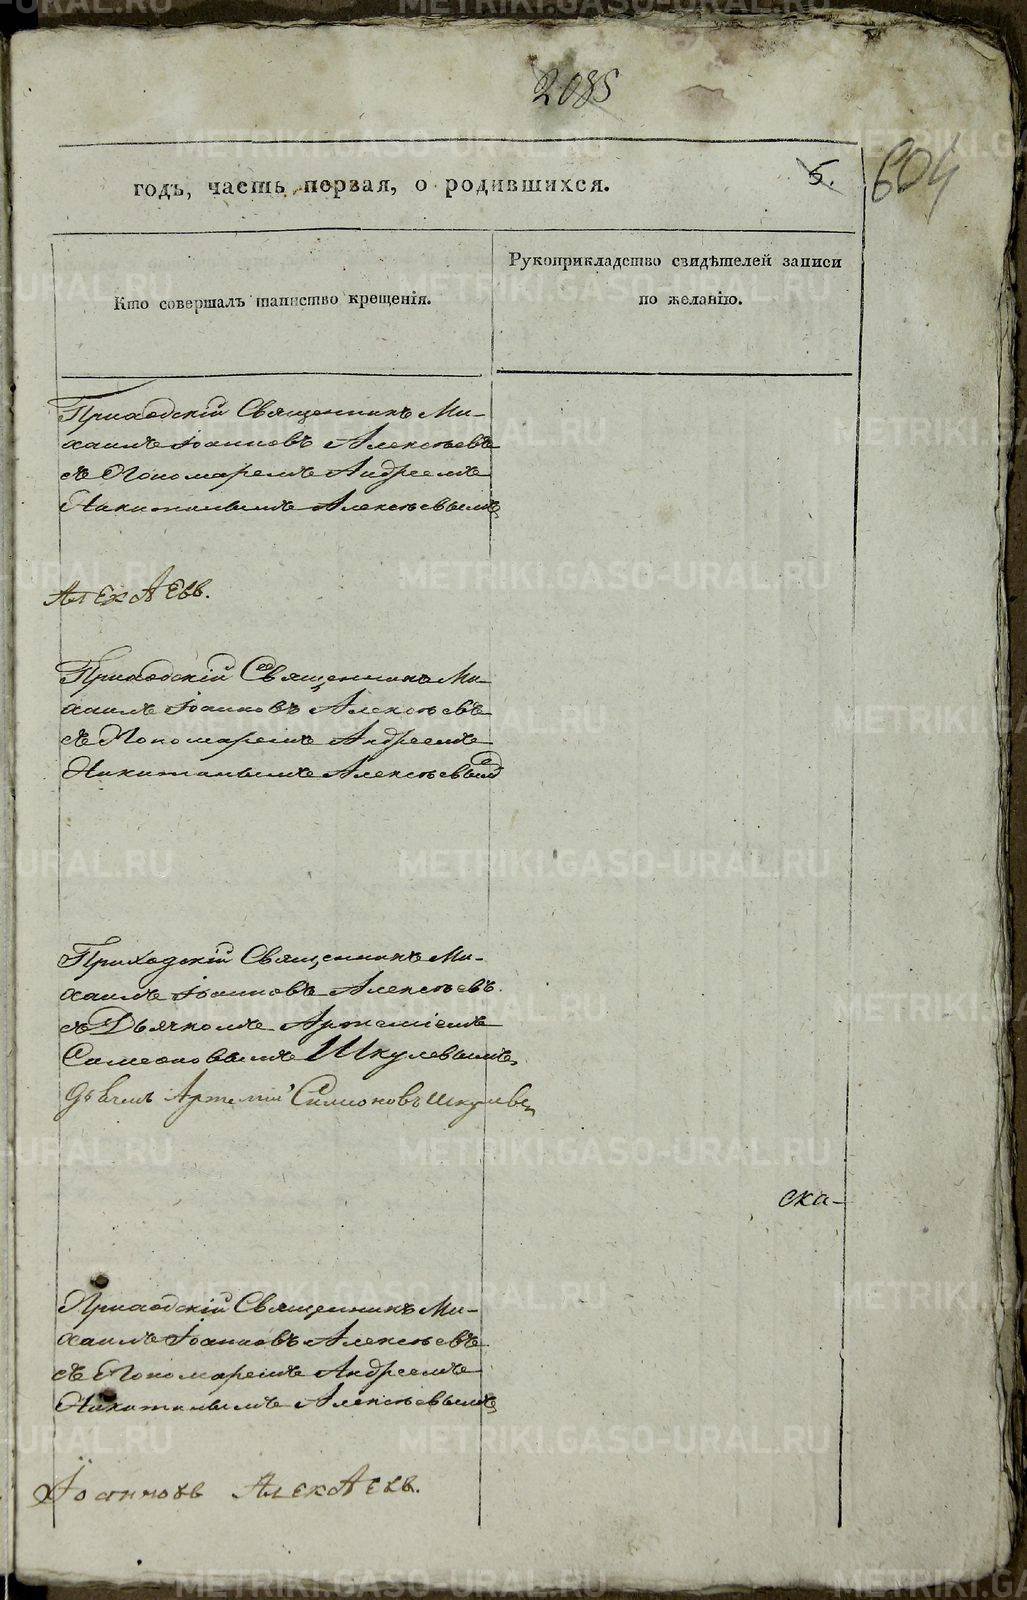 2085
604
годъ, часть первая, о родившихся.
5.
Кто совершалъ таинство крещенія.
Рукоприкладство свидѣтелей записи
по желанію.
Приходскій Священникъ Ми-
хаилъ Іоанновъ Алексѣевъ
съ Пономаремъ Андреемъ
Никитинымъ Алексѣевымъ
АлекѣЕвъ.
Приходскій Священникъ Ми-
хаилъ Іоанновъ Алексѣевъ
съ Пономаремъ Андреемъ
Никитинымъ Алексѣевымъ
Приходскій Священникъ Ми-
хаилъ Іоанновъ Алексѣевъ
съ Дьячкомъ Артеміемъ
Симеоновымъ Шкулевымъ,
Артемий Симионовъ Шкулевъ
ска-
Приходскій Священникъ Ми-
хаилъ Іоанновъ Алексѣевъ
съ Пономаремъ Андреемъ
Никитинымъ Алексѣевымъ
Іоанновъ
METRIKI.GASO-URAL.RU